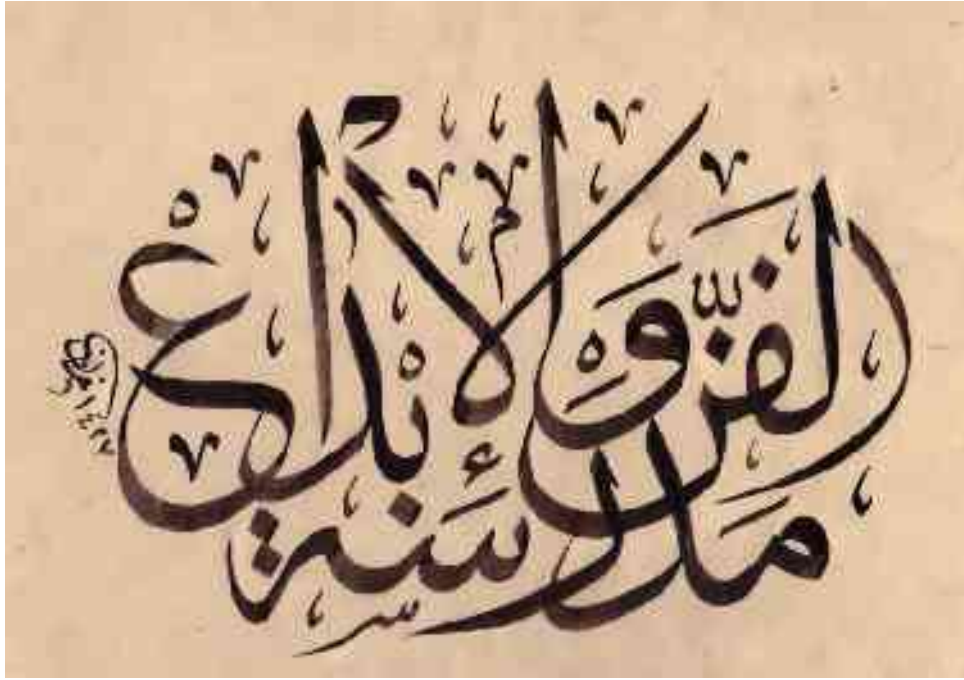 مدرسة
الفن والإبداع
١٤٢٧